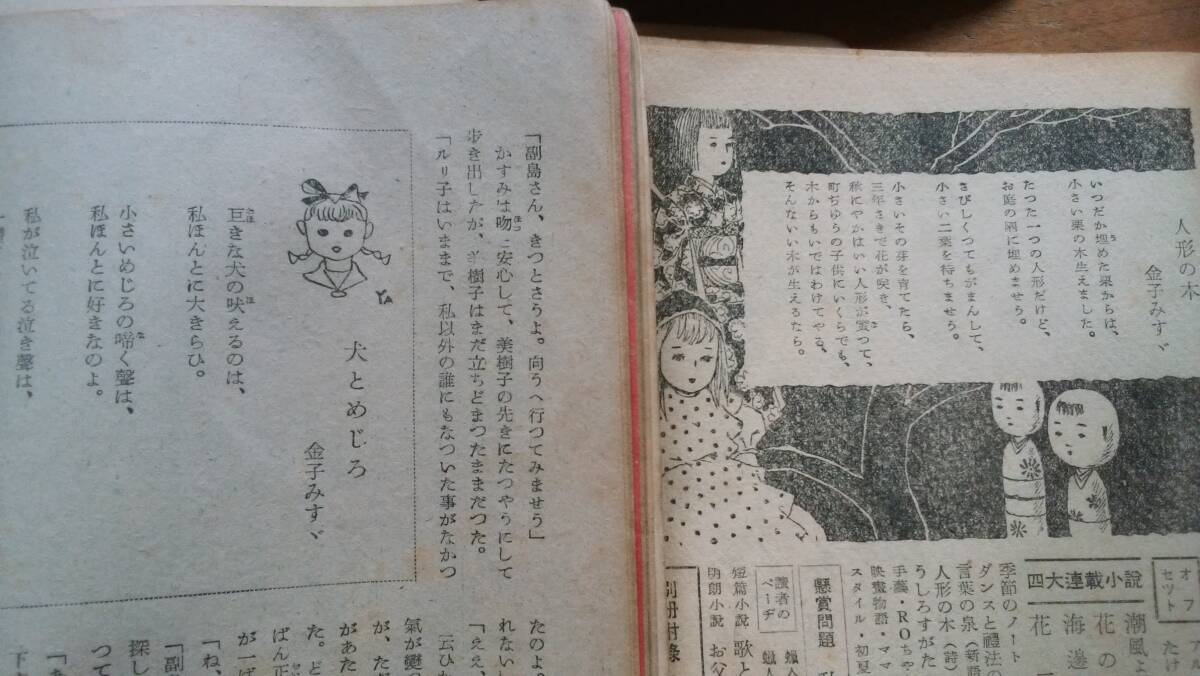 人形の木
金子みすゞ
いつだか埋めた栗からは、
小さい栗の木生えました。
たつた一つの人形だけど、
お庭の隅に埋めませう。
さびしくつてもがまんして、
小さい二葉を待ちませう。
小さいその芽を育てたら、
三年さきで花が咲き、
秋にやかはいい人形が実つて、
町ぢゆうの子供にいくらでも、
木からもいではわけてやる、
そんないい木が生えるたら。
オフ
セツト
四大連載小說
潮風よ
花の
海邊
花
季節のノート
ダンスと禮法の
言葉の泉(新語
人形の木(詩)
うしろすがた
手藝・ROちや
映畫物語・ママ
スタイル・初夏
懸賞問題
讀者の
ページ
蠟人
蠟人
短篇小說 歌と
明朗小說 お父
別冊付錄
「副島さん、きつとさうよ。向うへ行つてみませう」
かすみは吻と安心して、美樹子の先きにたつやうにして
歩き出したが、美樹子はまだ立ちどまつたままだつた。
「ルリ子はいままで、私以外の誰にもなついた事がなかつ
犬とめじろ
金子みすゞ
巨きな犬の吠えるのは、
私ほんとに大きらひ。
小さいめじろの啼く聲は、
私ほんとに好きなのよ。
私が泣いてる泣き聲は、
たのよ。
れない
「ええ、
云ひ
氣が變
が、た
があた
た。ど
ばん正
が一ば
「ね、
「副
探し
つて
「あ
下